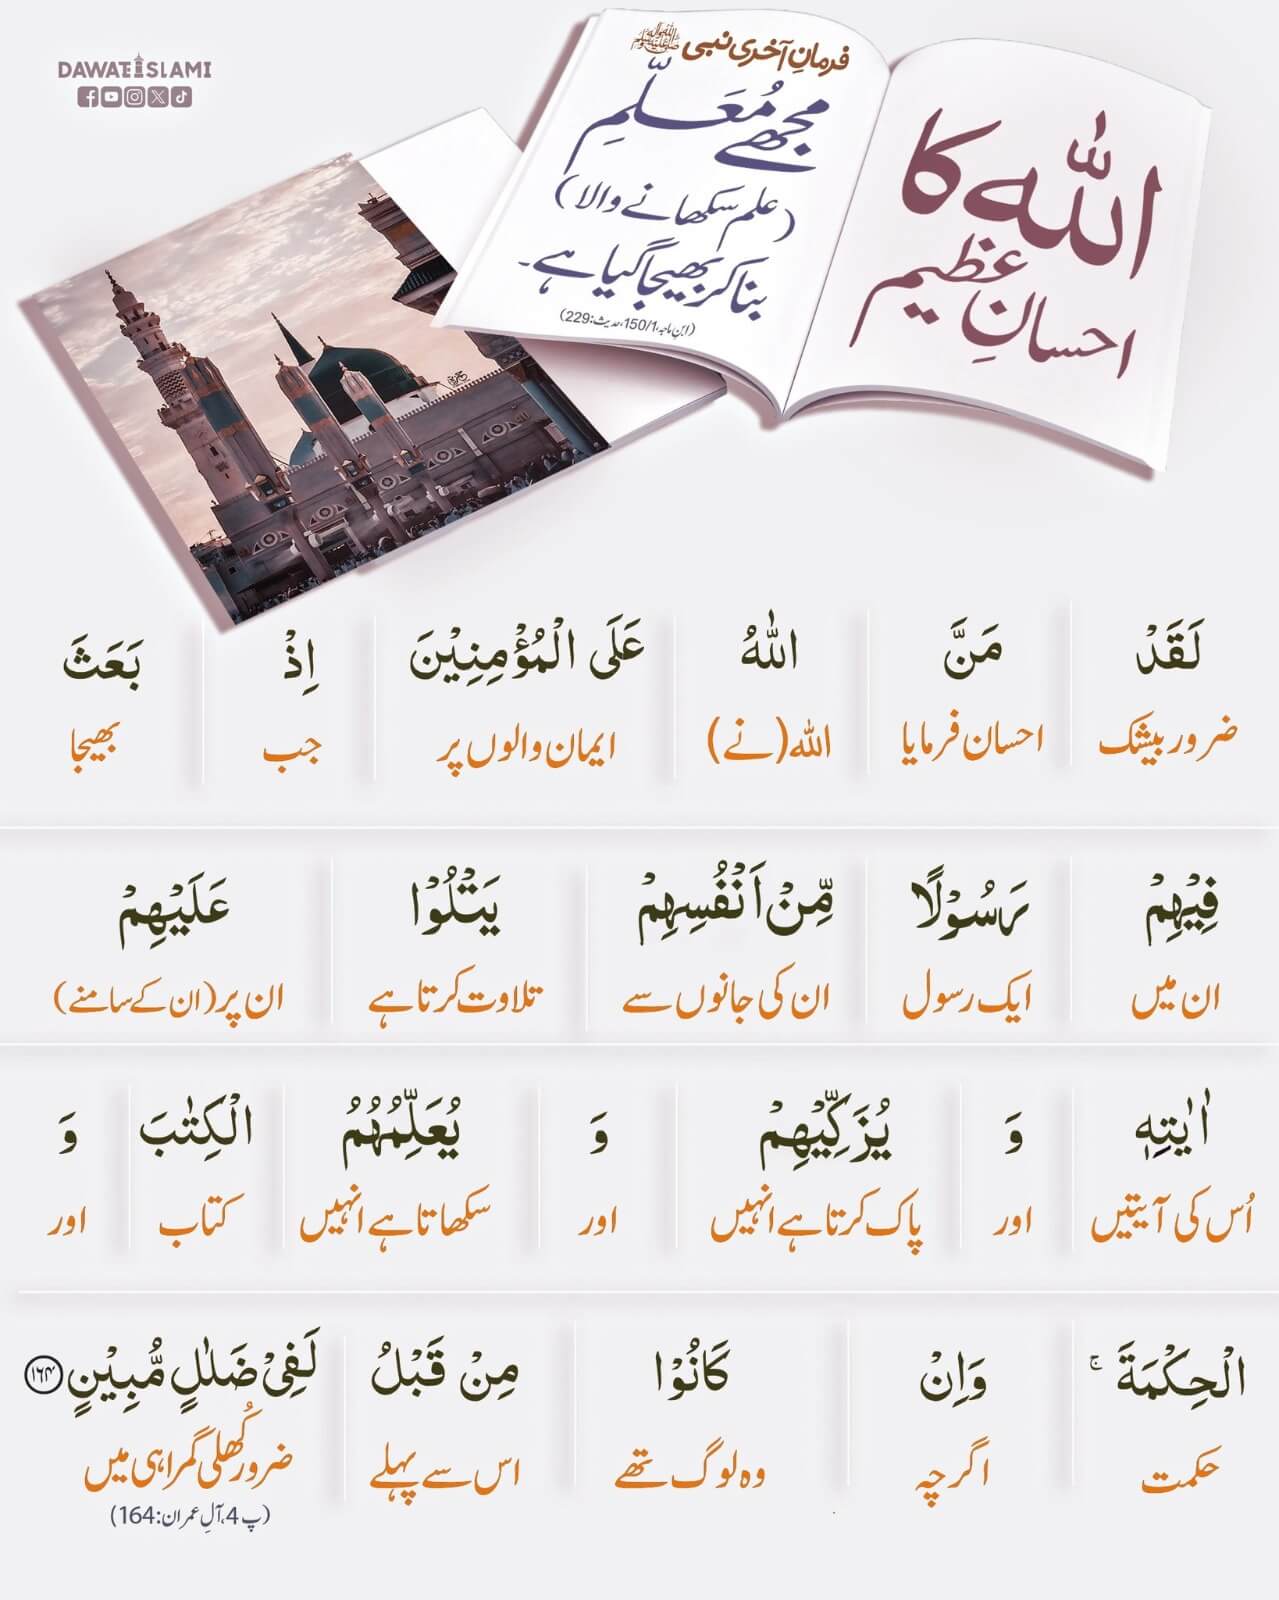 DAWATEISLAMI
اللہ کا
احسانِ عظیم
فرمانِ آخری نبی صلی اللہ علیہ واٰلہٖ وسلم
مجھے مُعَلِّم
(علم سکھانے والا)
بنا کر بھیجا گیا ہے۔
(ابنِ ماجہ،150/1،حدیث:229)
لَقَدْ مَنَّ اللّٰهُ عَلَى الْمُؤْمِنِیْنَ اِذْ بَعَثَ
ضرور بیشک احسان فرمایا اللہ(نے) ایمان والوں پر جب بھیجا
فِیْهِمْ رَسُوْلًا مِّنْ اَنْفُسِهِمْ یَتْلُوْا عَلَیْهِمْ
ان میں ایک رسول ان کی جانوں سے تلاوت کرتا ہے ان پر(ان کے سامنے)
اٰیٰتِهٖ وَ یُزَكِّیْهِمْ وَ یُعَلِّمُهُمُ الْكِتٰبَ وَ
اُس کی آیتیں اور پاک کرتا ہے انہیں اور سکھاتا ہے انہیں کتاب اور
الْحِكْمَةَ ۚ وَ اِنْ كَانُوْا مِنْ قَبْلُ لَفِیْ ضَلٰلٍ مُّبِیْنٍ ﴿۱۶۴﴾
حکمت اگرچہ وہ لوگ تھے اس سے پہلے ضرور کُھلی گمراہی میں
(پ 4،آلِ عمران:164)